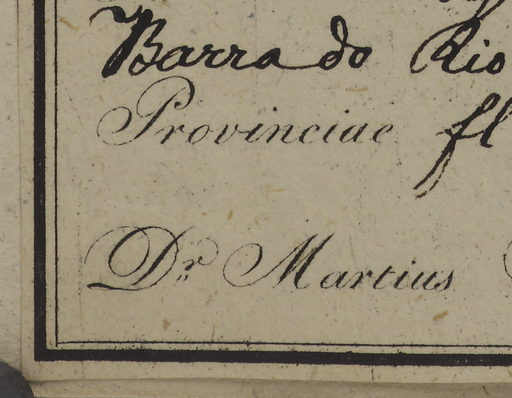 Barra do Rio
Provinciae fl
Dr. Martius